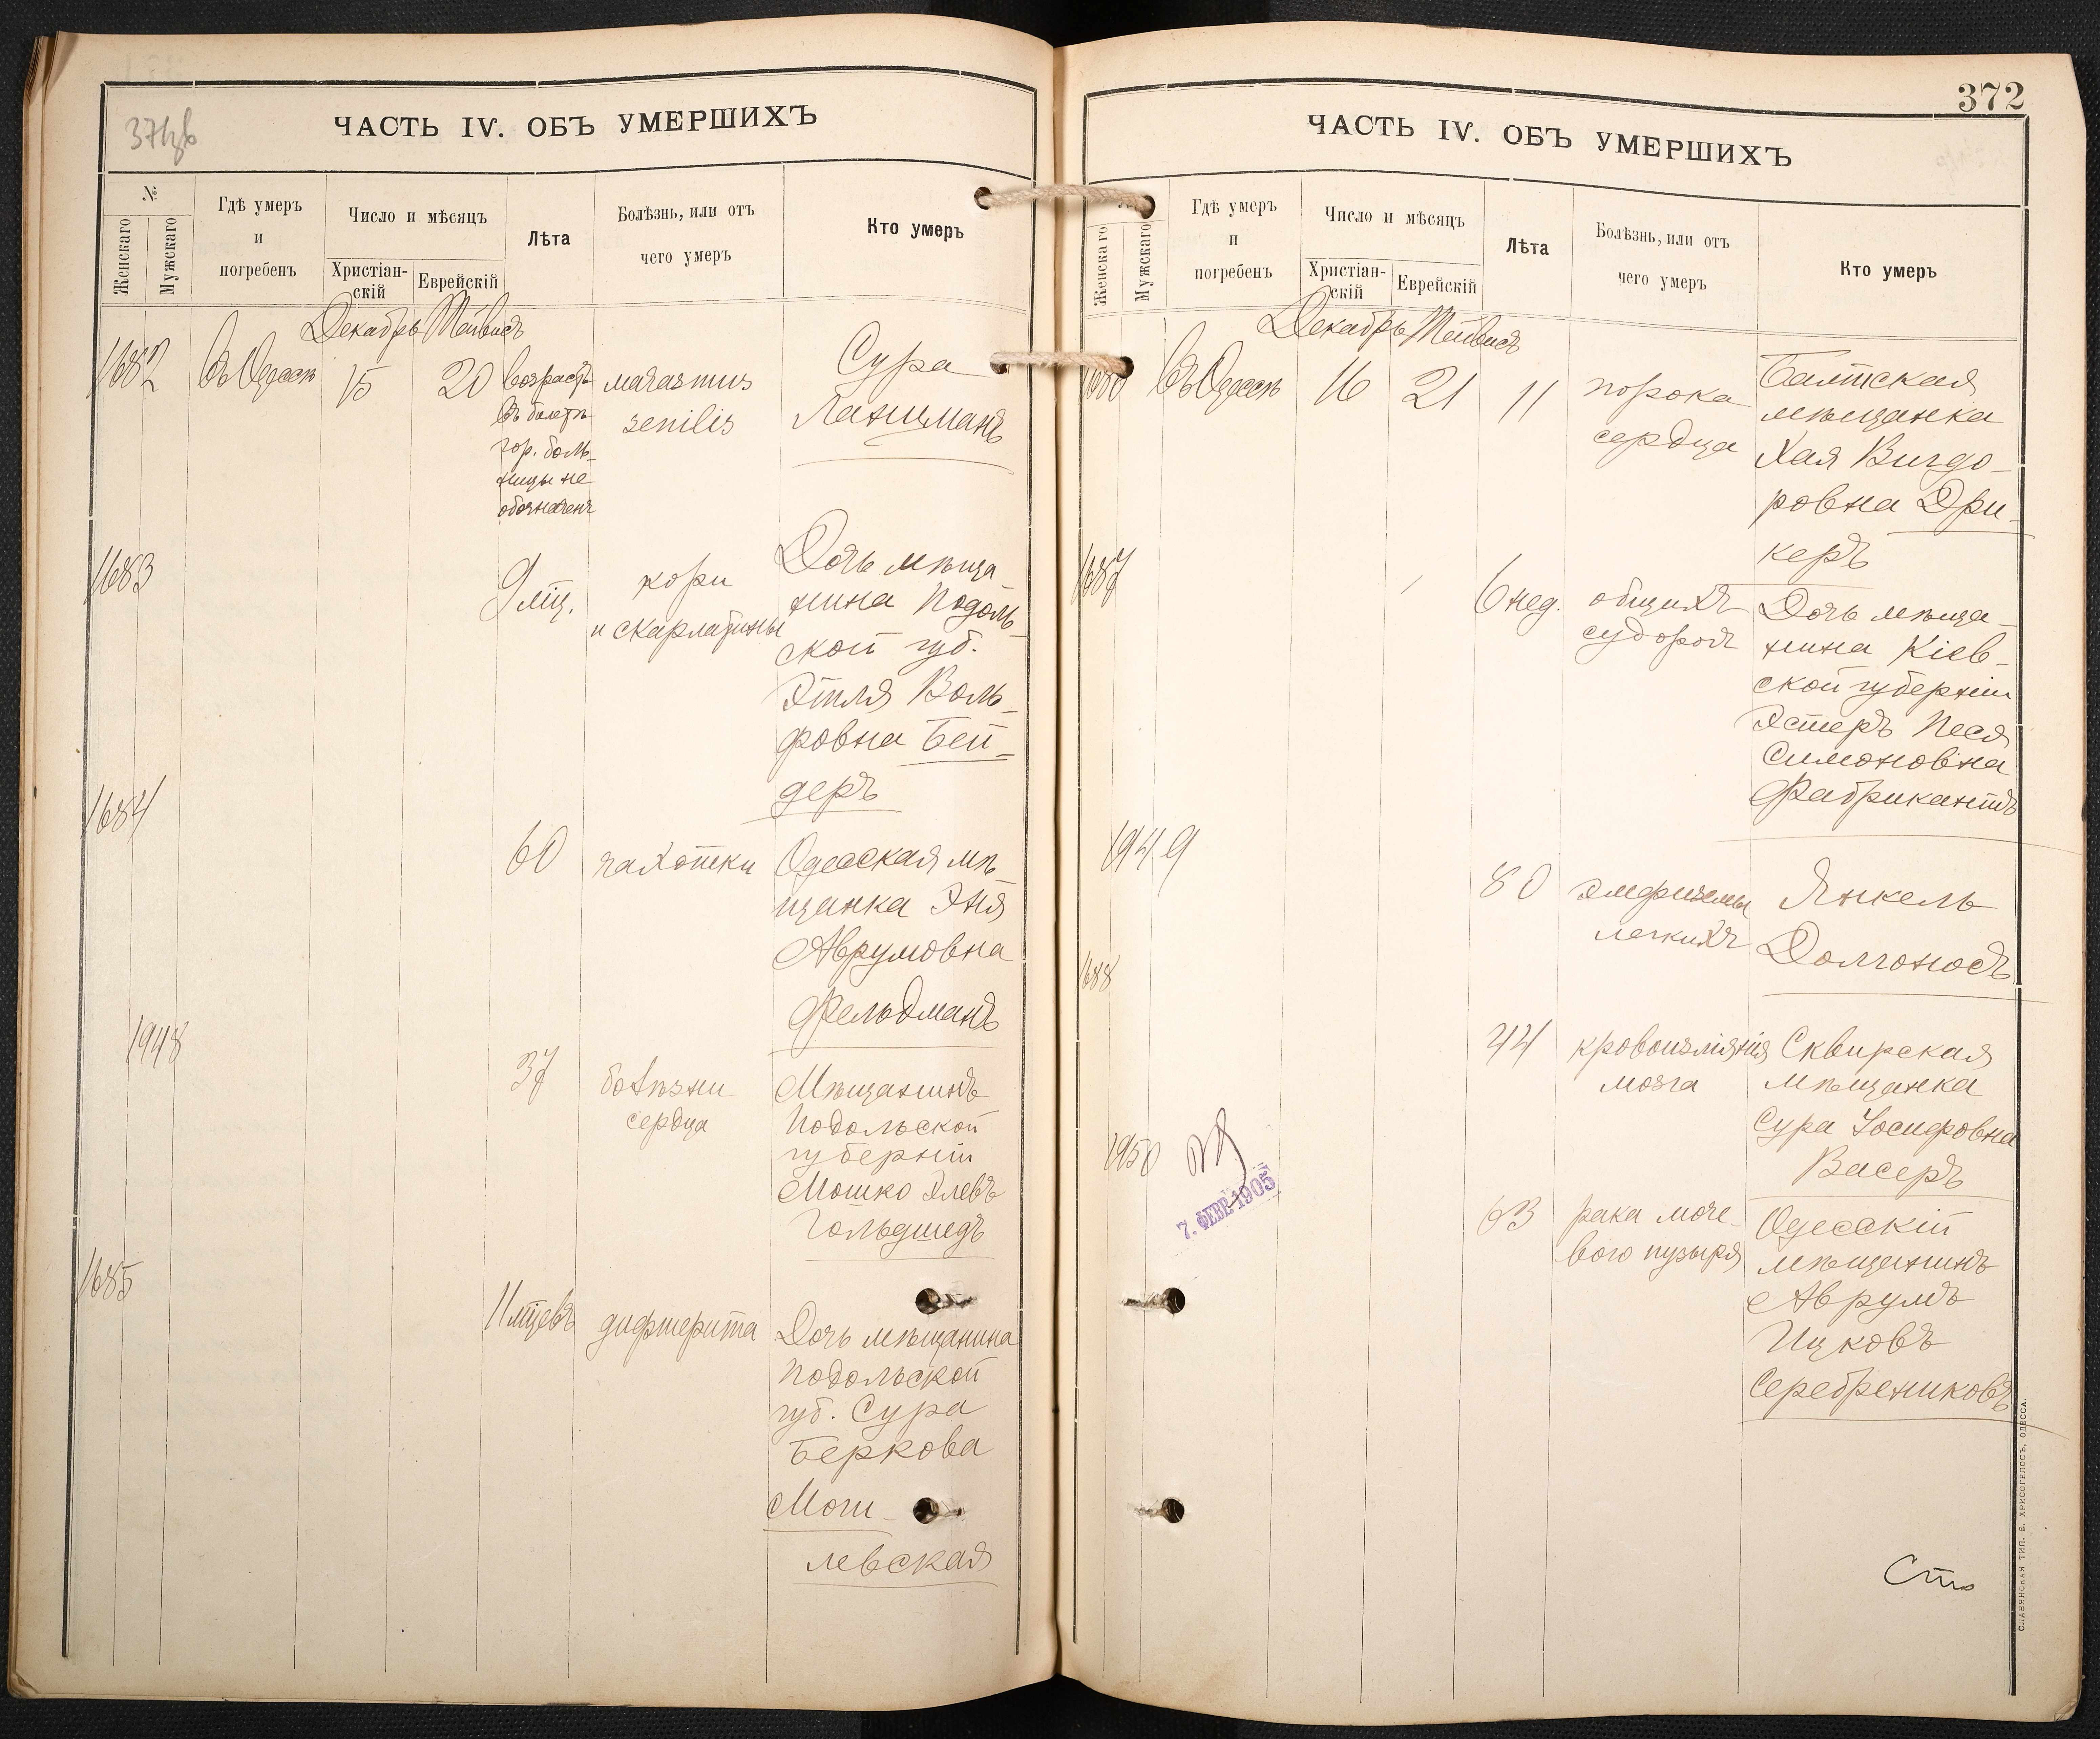 ЧАСТЬ IV. ОБЪ УМЕРШИХЪ
№
Женскаго
Мужскаго
Гдѣ умеръ
и
погребенъ
Число и мѣсяцъ
Христіан-
скій
Еврейскій
Лѣта
Болѣзнь, или отъ
чего умеръ
Кто умеръ
Декабрь Тейвисъ
1682 Въ Одессѣ 15 20
возрастъ
въ билетѣ
гор. боль-
ницы не
обозначенъ
marasmus
senilis
Сура
Ланцманъ
1683
9 мц.
кори
и скарлатины
Дочь мѣща-
нина Подоль-
ской губ.
Этля Воль-
фовна Бен-
деръ
1684
60
чахотки
Одесская мѣ-
щанка Эня
Аврумовна
Фельдманъ
1948
37
болѣзни
сердца
Мѣщанинъ
Подольской
губерніи
Мошко Элевъ
Гольдшедъ
1685
11 мцевъ
дифтерита
Дочь мѣщанина
Подольской
губ. Сура
Беркова
Моги-
левская
372
ЧАСТЬ IV. ОБЪ УМЕРШИХЪ
Женскаго
Мужскаго
Гдѣ умеръ
и
погребенъ
Число и мѣсяцъ
Христіан-
скій
Еврейскій
Лѣта
Болѣзнь, или отъ
чего умеръ
Кто умеръ
Декабрь Тейвисъ
1686 Въ Одессѣ 16 21 11
порока
сердца
Балтская
мѣщанка
Хая Вигдо-
ровна Дри-
керъ
1687
6 нед.
общихъ
судорогъ
Дочь мѣща-
нина Кіев-
ской губерніи
Эстеръ Песя
Симоновна
Фабрикантъ
1949
80
эмфиземы
легкихъ
Янкель
Долгоносъ
1688
44
кровоизліянія
мозга
Сквирская
мѣщанка
Сура Іосифовна
Васеръ
1950
7. ФЕВР 1905
63
рака моче-
вого пузыря
Одесскій
мѣщанинъ
Аврумъ
Ицковъ
Серебрениковъ
СЛАВЯНСКАЯ ТИП. Е. ХРИСОГЕЛОСЪ, ОДЕССА.